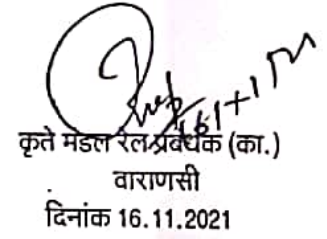 कृते मंडल रेल प्रबंधक (का.)
वाराणसी
दिनांक 16.11.2021